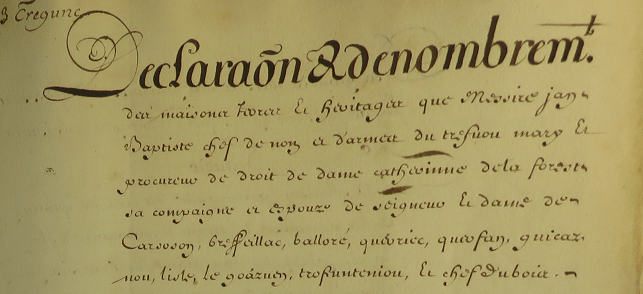 Tregunc
Declaraõn & denombremt.
des maisons terres Et heritages que Messire jan
Baptiste chef de nom et d'armes du tresuou mary Et
procureur de droit de dame catherinne de la forest
sa compaigne et espouze de seigneur Et dame de
Carsoson, breffeillac, balloré, quévriec, querfan, guicaz-
nou, lisle, le goâruen, trofunteniou, Et chefduboie.